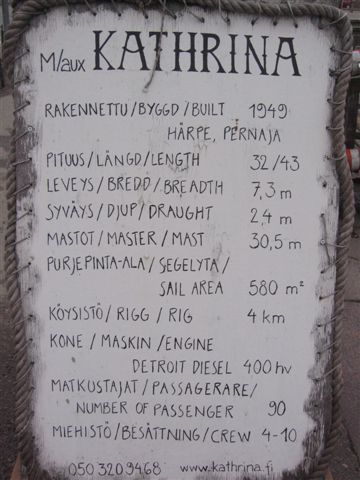 M/aux KATHRINA
RAKENNETTU/BYGGD/BUILT 1949
HÄRPE, PERNAJA
PITUUS/LÄNGD/LENGTH 32/43
LEVEYS/BREDD/BREADTH 7,3 m
SYVÄYS/DJUP/DRAUGHT 2,4 m
MASTOT/MASTER/MAST 30,5 m
PURJEPINTA-ALA/SEGELYTA/
SAIL AREA 580 m²
KÖYSISTÖ/RIGG/RIG 4 km
KONE/MASKIN/ENGINE
DETROIT DIESEL 400 hv
MATKUSTAJAT/PASSAGERARE/
NUMBER OF PASSENGER 90
MIEHISTÖ/BESÄTTNING/CREW 4-10
050 320 9468 www.kathrina.fi